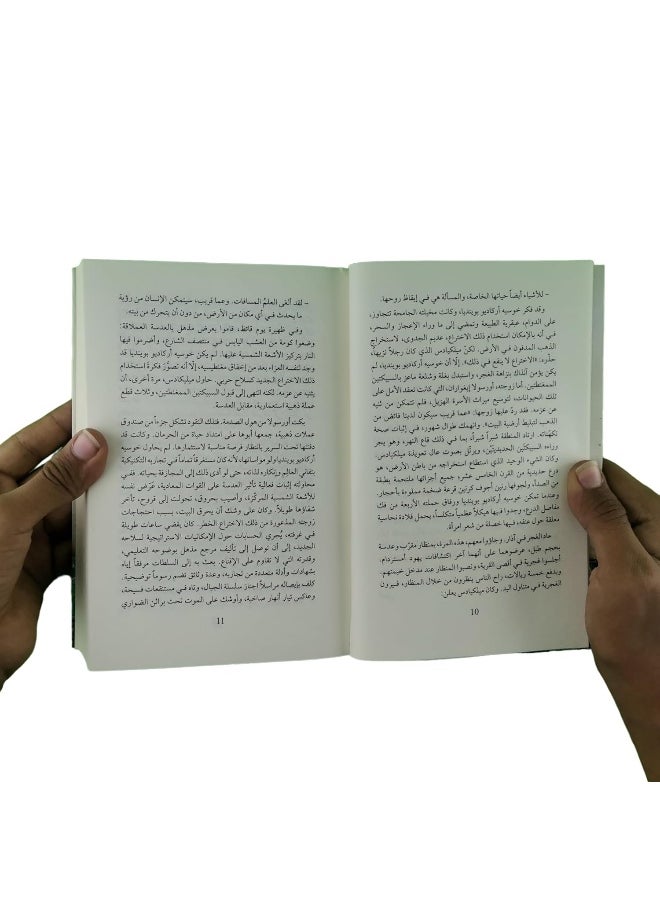 – للأشياء أيضاً حياتها الخاصة، والمسألة هي في إيقاظ روحها.
وقد فكر خوسيه أركاديو بوينديا، وكانت مخيلته الجامحة تتجاوز،
على الدوام، عبقرية الطبيعة وتمضي إلى ما وراء الإعجاز والسحر،
في أنه بالإمكان استخدام ذلك الاختراع، عديم الجدوى، لاستخراج
الذهب المدفون في الأرض. لكنّ ميلكيادس الذي كان رجلاً نزيهاً،
حذّره: «الاختراع لا ينفع في ذلك». إلّا أن خوسيه أركاديو بوينديا، لم
يكن يؤمن آنذاك بنزاهة الغجر، واستبدل بغلة وشلعة ماعز بالسبيكتين
الممغنطتين. أما زوجته، أورسولا إيغواران، التي كانت تعقد الأمل على
تلك الحيوانات، لتوسيع ميراث الأسرة الهزيل، فلم تتمكن من ثنيه
عن عزمه. فقد ردّ عليها زوجها: «عما قريب سيكون لدينا فائض من
الذهب لتبليط أرضية البيت». وانهمك طوال شهور، في إثبات صحة
تكهّناته. ارتاد المنطقة شبراً شبراً، بما في ذلك قاع النهر، وهو يجر
وراءه السبيكتين الحديديتين، ويرتّل بصوت عال تعويذة ميلكيادس.
وكان الشيء الوحيد الذي استطاع استخراجه من باطن الأرض، هو
درع حديدية من القرن الخامس عشر؛ جميع أجزائها ملتحمة بطبقة
من الصدأ، ولجوفها رنين أجوف كرنين قرعة ضخمة مملوءة بأحجار.
وعندما تمكن خوسيه أركاديو بوينديا ورفاق حملته الأربعة من فك
مفاصل الدرع، وجدوا فيها هيكلاً عظمياً متكلساً، يحمل قلادة نحاسية
معلقة حول عنقه، فيها خصلة من شعر امرأة.
عاد الغجر في آذار. وجاؤوا معهم، هذه المرة، بمنظار مقرّب وعدسة
بحجم طبل، عرضوهما على أنهما آخر اكتشافات يهود أمستردام.
أجلسوا غجرية في أقصى القرية، ونصبوا المنظار عند مدخل خيمتهم.
وبدفع خمسة ريالات، راح الناس ينظرون من خلال المنظار، فيرون
الغجرية في متناول اليد. وكان ميلكيادس يعلن:
10
– لقد ألغى العلمُ المسافات. وعما قريب، سيتمكن الإنسان من رؤية
ما يحدث في أي مكان من الأرض، من دون أن يتحرك من بيته.
وفي ظهيرة يوم قائظ، قاموا بعرض مذهل بالعدسة العملاقة:
وضعوا كومة من العشب اليابس في منتصف الشارع، وأضرموا فيها
النار بتركيز الأشعة الشمسية عليها. لم يكن خوسيه أركاديو بوينديا قد
وجد لنفسه العزاء بعد من إخفاق مغنطيسيه، إلا أنه تصوَّر فكرة استخدام
ذلك الاختراع الجديد كسلاح حربي. حاول ميلكيادس، مرة أخرى، أن
يثنيه عن عزمه. لكنه انتهى إلى قبول السبيكتين الممغنطتين، وثلاث قطع
عملة ذهبية استعمارية، مقابل العدسة.
بكت أورسولا من هول الصدمة. فتلك النقود تشكل جزءاً من صندوق
عملات ذهبية، جمعها أبوها على امتداد حياة من الحرمان. وكانت قد
دفنتها تحت السرير بانتظار فرصة مناسبة لاستثمارها. لم يحاول خوسيه
أركاديو بوينديا لو مواساتها، لأنه كان مستغرقاً تماماً في تجاربه التكتيكية
بتفاني العالِم وإنكاره لذاته، حتى لو أدى ذلك إلى المجازفة بحياته. ففي
محاولته إثبات فعالية تأثير العدسة على القوات المعادية، عرّض نفسه
للأشعة الشمسية المركّزة، وأصيب بحروق، تحولت إلى قروح، تأخر
شفاؤها طويلاً. وكان على وشك أن يحرق البيت، بسبب احتجاجات
زوجته المذعورة من ذلك الاختراع الخطر. كان يقضي ساعات طويلة
في غرفته، يُجري الحسابات حول الإمكانيات الاستراتيجية لسلاحه
الجديد، إلى أن توصل إلى تأليف مرجع مذهل بوضوحه التعليمي،
وقدرته التي لا تقاوم على الإقناع. بعث به إلى السلطات مرفقاً إياه
بشهادات وأدلة متعددة من تجاربه، وعدة وثائق تضم رسوماً توضيحية.
كلف بإيصاله مراسلاً اجتاز سلسلة الجبال، وتاه في مستنقعات فسيحة،
وعاكس تيار أنهار صاخبة، وأوشك على الموت تحت براثن الضواري
11